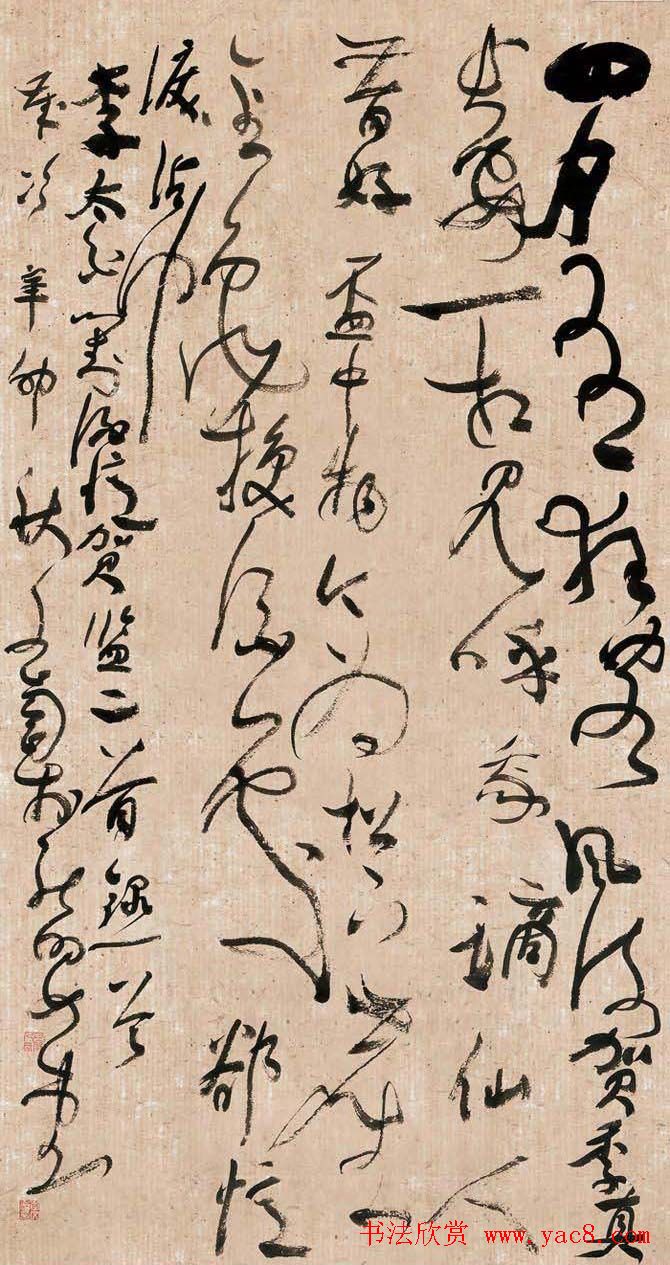 四明有狂客风流贺季真
长安一相见呼我谪仙人
昔好盃中物今为松下尘
金龟换酒处却忆
泪沾巾
李太白对酒忆贺监二首录
岁次辛卯秋
书法欣赏 www.yac8.com